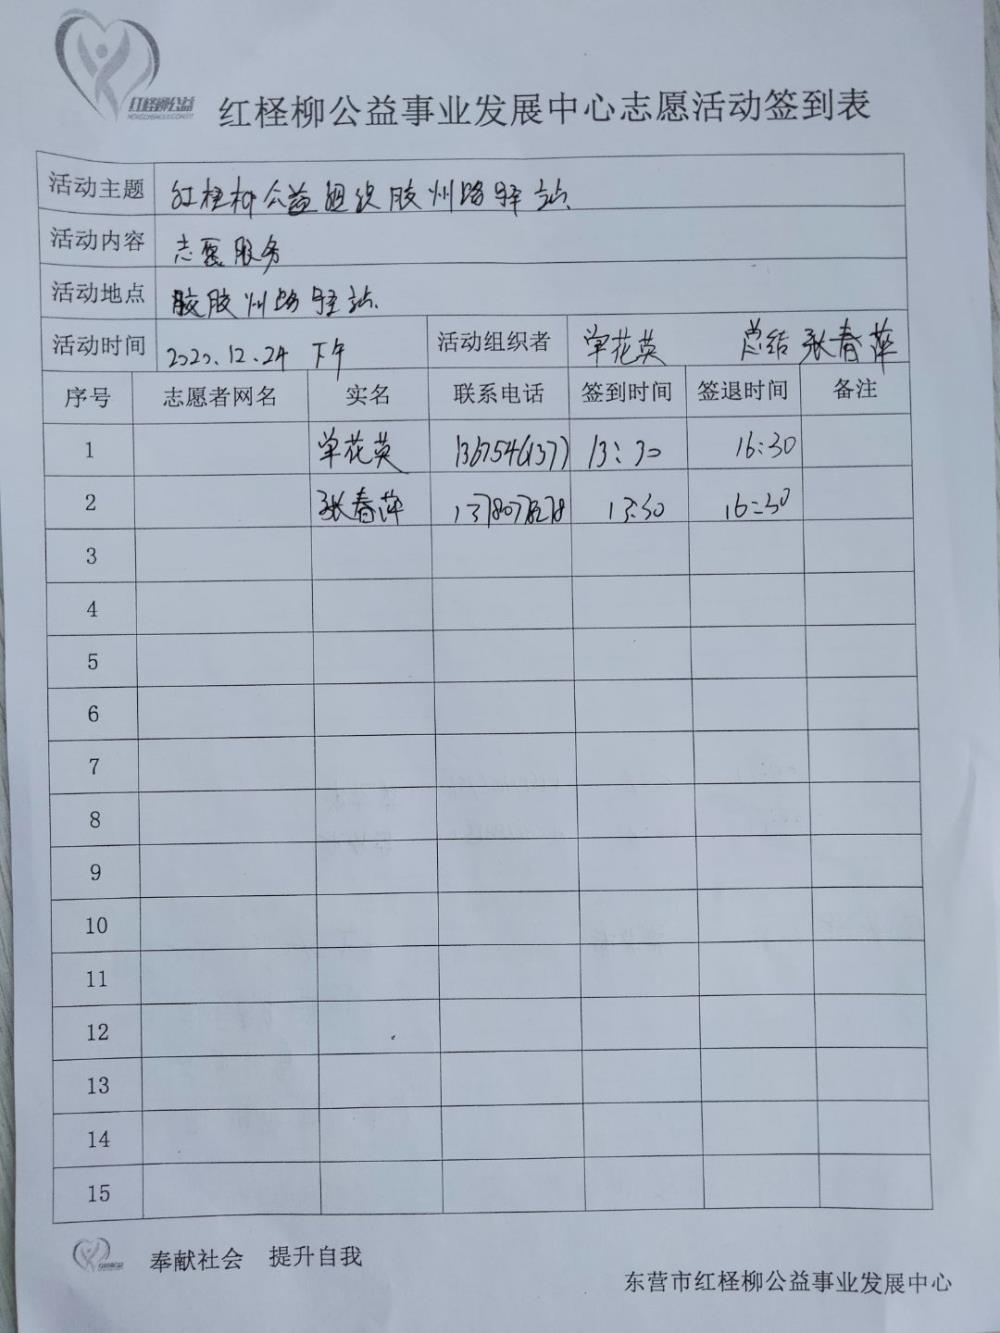 红柽柳公益
红柽柳公益事业发展中心志愿活动签到表
活动主题 红柽柳公益组织胶州路驿站
活动内容 志愿服务
活动地点 胶州路驿站
活动时间 2020.12.24 下午 活动组织者 单花英 总结 张春萍
序号 志愿者网名 实名 联系电话 签到时间 签退时间 备注
1 单花英 13:30 16:30
2 张春萍 13:30 16:30
3
4
5
6
7
8
9
10
11
12
13
14
15
奉献社会 提升自我
东营市红柽柳公益事业发展中心